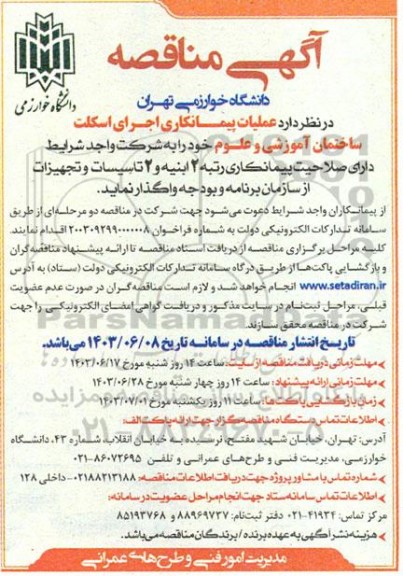 آگهی مناقصه
دانشگاه خوارزمی
دانشگاه خوارزمی تهران
در نظر دارد عملیات پیمانکاری اجرای اسکلت
ساختمان آموزشی و علوم خود را به شرکت واجد شرایط
دارای صلاحیت پیمانکاری رتبه ۲ ابنیه و ۲ تاسیسات و تجهیزات
از سازمان برنامه و بودجه واگذار نماید.
از پیمانکاران واجد شرایط دعوت می‌شود جهت شرکت در مناقصه دو مرحله‌ای از طریق
سامانه تدارکات الکترونیکی دولت به شماره فراخوان ۲۰۰۳۰۹۲۹۹۰۰۰۰۰۰۸ اقدام نمایند.
کلیه مراحل برگزاری مناقصه از دریافت اسناد مناقصه تا ارائه پیشنهاد مناقصه‌گران
و بازگشایی پاکت‌ها از طریق درگاه سامانه تدارکات الکترونیکی دولت (ستاد) به آدرس
www.setadiran.ir انجام خواهد شد و لازم است مناقصه‌گران در صورت عدم عضویت
قبلی، مراحل ثبت‌نام در سایت مذکور و دریافت گواهی امضای الکترونیکی را جهت
شرکت در مناقصه محقق سازند.
تاریخ انتشار مناقصه در سامانه تاریخ ۱۴۰۳/۰۶/۰۸ می‌باشد.
مهلت زمانی دریافت مناقصه از سایت: ساعت ۱۴ روز شنبه مورخ ۱۴۰۳/۰۶/۱۷
مهلت زمانی ارائه پیشنهاد: ساعت ۱۴ روز چهار شنبه مورخ ۱۴۰۳/۰۶/۲۸
زمان بازگشایی پاکت‌ها: ساعت ۱۱ روز یکشنبه مورخ ۱۴۰۳/۰۷/۰۱
اطلاعات تماس دستگاه مناقصه‌گزار جهت ارائه پاکت الف:
آدرس: تهران، خیابان شهید مفتح، نرسیده به خیابان انقلاب، شماره ۴۳، دانشگاه
خوارزمی، مدیریت فنی و طرح‌های عمرانی و تلفن ۸۶۰۷۲۶۹۵-۰۲۱
شماره تماس با مشاور پروژه جهت دریافت اطلاعات مناقصه: ۰۲۱۸۸۳۱۳۱۸۸-داخلی ۱۲۸
اطلاعات تماس سامانه ستاد جهت انجام مراحل عضویت در سامانه:
مرکز تماس: ۴۱۹۳۴-۰۲۱ دفتر ثبت‌نام: ۸۸۹۶۹۷۳۷ و ۸۵۱۹۳۷۶۸
هزینه نشر آگهی به عهده برنده / برندگان مناقصه می‌باشد.
مدیریت امور فنی و طرح‌های عمرانی
ParsNamadData